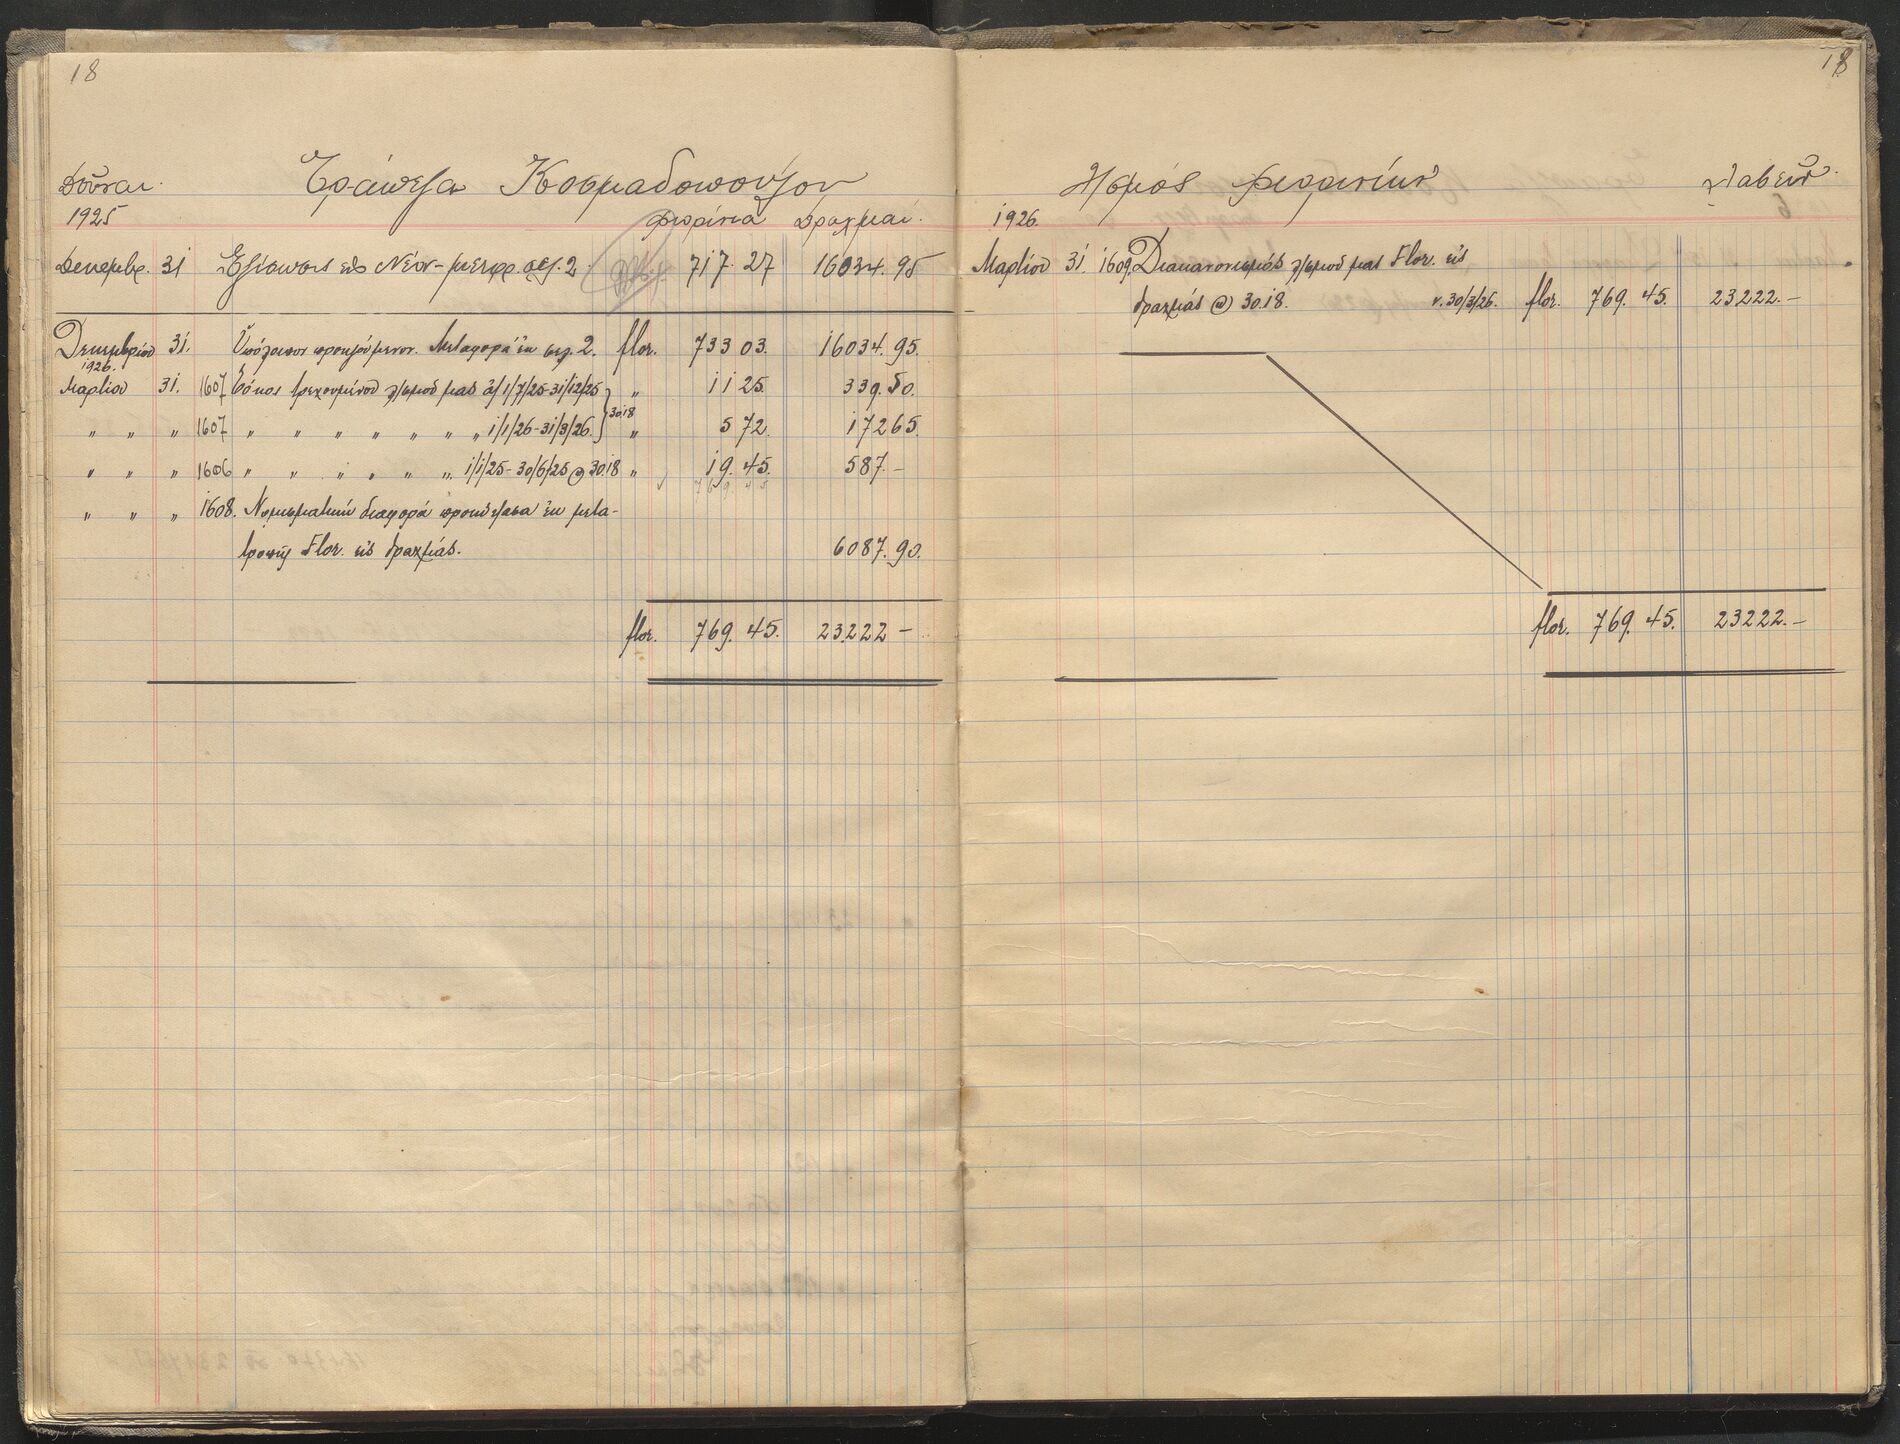 18
Δοῦναι.
Τράπεζα Κοσμαδοπούλου
1925
φιορίνια δραχμαί.
Δεκεμβρ. 31 Ἐξίσωσις εἰς Νέον - μεταφρ. σελ. 2 717.27 16034.95
Δεκεμβρίου 31. Ὑπόλοιπον προηγούμενον. Μεταφορά ἐκ σελ. 2. flor. 733 03. 16034.95.
1926.
Μαρτίου 31. 1607 Τόκος τρεχουμένου λ/σμοῦ μας ἀπ 1/7/25-31/12/25 " 11 25. 339.50.
" " " 1607 " " " " " " " 1/1/26-31/3/26. 30.18 " 5 72. 172 65.
" " " 1606 " " " " " " 1/1/25-30/6/25 @ 30.18 " 19.45. 587.-
769 45
" " " 1608. Νομισματική διαφορά προκύψασα ἐκ μετα-
τροπῆς Flor. εἰς δραχμάς. 6087.90.
flor. 769.45. 23222 -
18
Λ/σμός φιορινίων
Λαβεῖν.
1926.
Μαρτίου 31. 1609. Διακανονισμός λ/σμοῦ μας Flor. εἰς
δραχμάς @ 30.18. v. 30/3/26. flor. 769.45. 23222.-
flor. 769.45. 23222.-